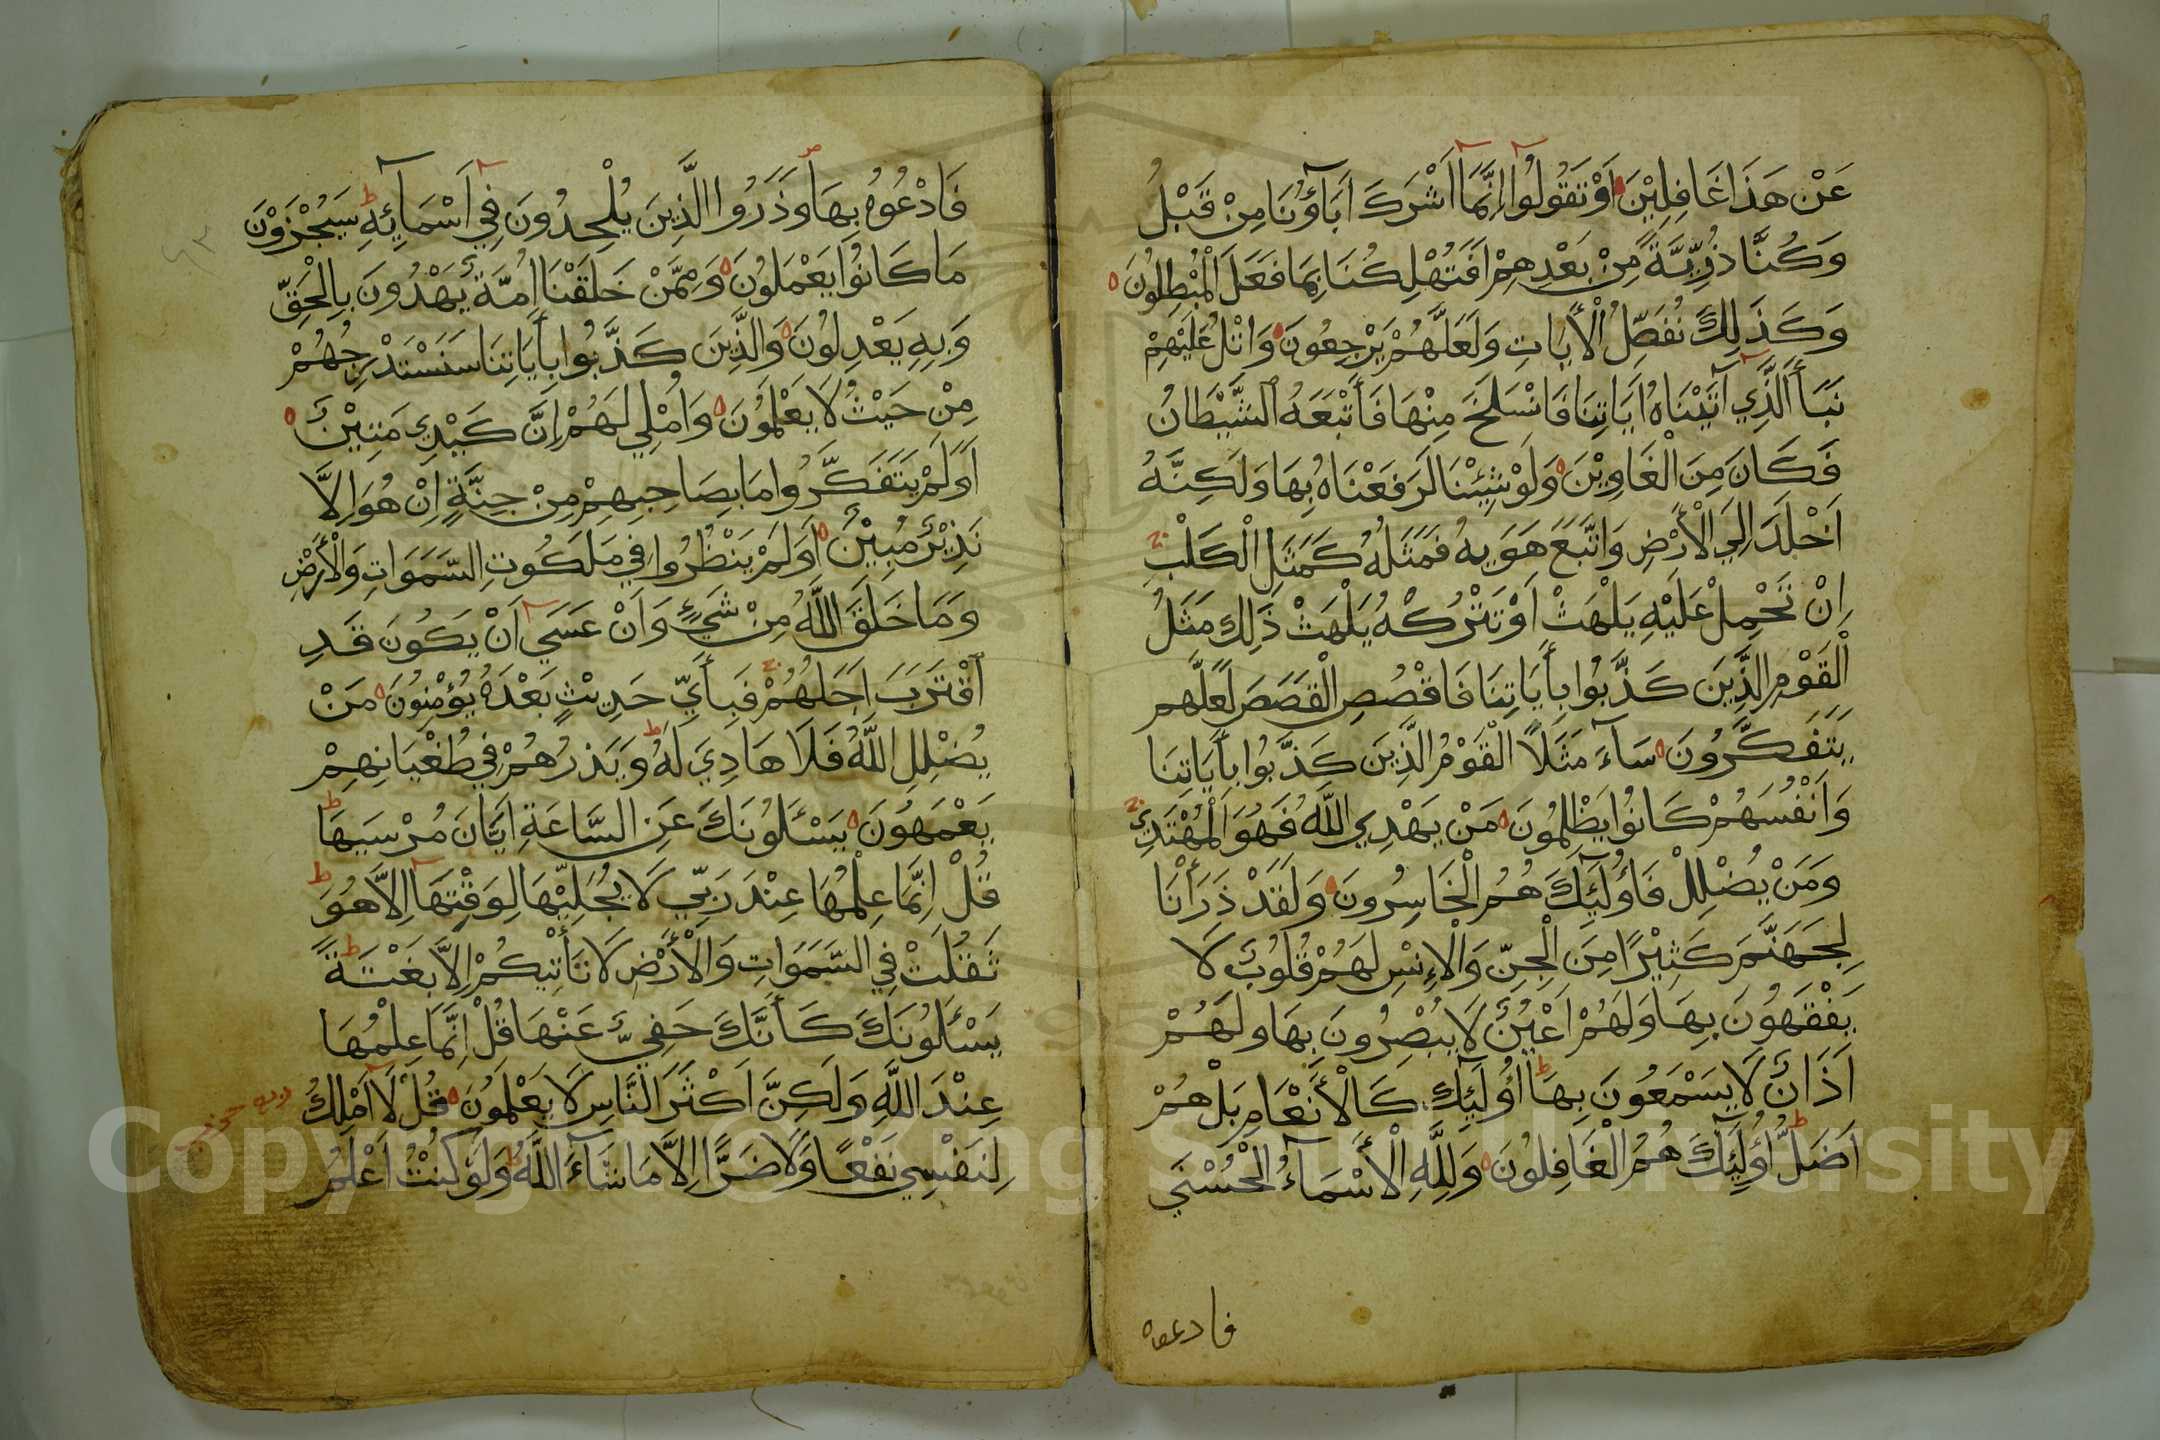 عَنْ هَذَا غَافِلِيْنَ اَوْ تَقُولُوا اِنَّمَا اَشْرَكَ اَبَآؤُنَا مِنْ قَبْلُ
وَكُنَّا ذُرِّيَّةً مِنْ بَعْدِهِمْ اَفَتُهْلِكُنَا بِمَا فَعَلَ الْمُبْطِلُونَ
وَكَذَلِكَ نُفَصِّلُ الْأَيَاتِ وَلَعَلَّهُمْ يَرْجِعُونَ وَاتْلُ عَلَيْهِمْ
نَبَأَ الَّذِي آتَيْنَاهُ اَيَاتِنَا فَانْسَلَخَ مِنْهَا فَأَتْبَعَهُ الشَّيْطَانُ
فَكَانَ مِنَ الْغَاوِيْنَ وَلَوْ شِئْنَا لَرَفَعْنَاهُ بِهَا وَلَكِنَّهُ
اَخْلَدَ اِلَي الْأَرْضِ وَاتَّبَعَ هَوَيهُ فَمَثَلُهُ كَمَثَلِ الْكَلْبِ
اِنْ تَحْمِلْ عَلَيْهِ يَلْهَثْ اَوْ تَتْرُكْهُ يَلْهَثْ ذَلِكَ مَثَلُ
الْقَوْمِ الَّذِينَ كَذَّبُوا بِأَيَاتِنَا فَاقْصُصِ الْقَصَصَ لَعَلَّهُم
يَتَفَكَّرُونَ سَآءَ مَثَلًا الْقَوْمُ الَّذِينَ كَذَّبُوا بِأَيَاتِنَا
وَاَنْفُسَهُمْ كَانُوا يَظْلِمُونَ مَنْ يَهْدِي اللَّهُ فَهُوَ الْمُهْتَدِي
وَمَنْ يُضْلِلْ فَاُولَئِكَ هُمُ الْخَاسِرُونَ وَلَقَدْ ذَرَأْنَا
لِجَهَنَّمَ كَثِيْرًا مِنَ الْجِنِّ وَالْاِنْسِ لَهُمْ قُلُوبٌ لَا
يَفْقَهُونَ بِهَا وَلَهُمْ اَعْيُنٌ لَا يُبْصِرُونَ بِهَا وَلَهُمْ
اَذَانٌ لَا يَسْمَعُونَ بِهَا اُولَئِكَ كَالْأَنْعَامِ بَلْ هُمْ
اَضَلُّ اُولَئِكَ هُمُ الْغَافِلُونَ وَلِلَّهِ الْأَسْمَآءُ الْحُسْنَي
فادعوه
فَادْعُوهُ بِهَا وَذَرُوا الَّذِينَ يُلْحِدُونَ فِي اَسْمَآئِهِ سَيُجْزَوْنَ
مَا كَانُوا يَعْمَلُونَ وَمِمَّنْ خَلَقْنَا اُمَّةٌ يَهْدُونَ بِالْحَقِّ
وَبِهِ يَعْدِلُونَ وَالَّذِينَ كَذَّبُوا بِأَيَاتِنَا سَنَسْتَدْرِجُهُمْ
مِنْ حَيْثُ لَا يَعْلَمُونَ وَاُمْلِي لَهُمْ اِنَّ كَيْدِي مَتِيْنٌ
اَوَلَمْ يَتَفَكَّرُوا مَا بِصَاحِبِهِمْ مِنْ جِنَّةٍ اِنْ هُوَ اِلَّا
نَذِيْرٌ مُبِيْنٌ اَوَلَمْ يَنْظُرُوا فِي مَلَكُوتِ السَّمَوَاتِ وَالْأَرْضِ
وَمَا خَلَقَ اللَّهُ مِنْ شَيْءٍ وَاَنْ عَسَي اَنْ يَكُونَ قَدِ
اقْتَرَبَ اَجَلُهُمْ فَبِأَيِّ حَدِيْثٍ بَعْدَهُ يُؤْمِنُونَ مَنْ
يُضْلِلِ اللَّهُ فَلَا هَادِيَ لَهُ وَيَذَرُهُمْ فِي طُغْيَانِهِمْ
يَعْمَهُونَ يَسْئَلُونَكَ عَنِ السَّاعَةِ اَيَّانَ مُرْسَيهَا
قُلْ اِنَّمَا عِلْمُهَا عِنْدَ رَبِّي لَا يُجَلِّيْهَا لِوَقْتِهَا اِلَّا هُوَ
ثَقُلَتْ فِي السَّمَوَاتِ وَالْأَرْضِ لَا تَأْتِيكُمْ اِلَّا بَغْتَةً
يَسْئَلُونَكَ كَأَنَّكَ حَفِيٌّ عَنْهَا قُلْ اِنَّمَا عِلْمُهَا
عِنْدَ اللَّهِ وَلَكِنَّ اَكْثَرَ النَّاسِ لَا يَعْلَمُونَ قُلْ لَا اَمْلِكُ
لِنَفْسِي نَفْعًا وَلَا ضَرًّا اِلَّا مَا شَآءَ اللَّهُ وَلَوْ كُنْتُ اَعْلَمُ
Copyright © King Saud University